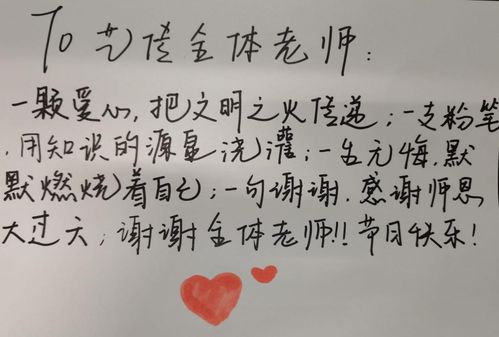 To艺信全体老师：
一颗爱心,把文明之火传递;一支粉笔
,用知识的源星浇灌;一生无悔,默
默燃烧着自己;一句谢谢.感谢师恩
大过天;谢谢全体老师!!节日快乐!